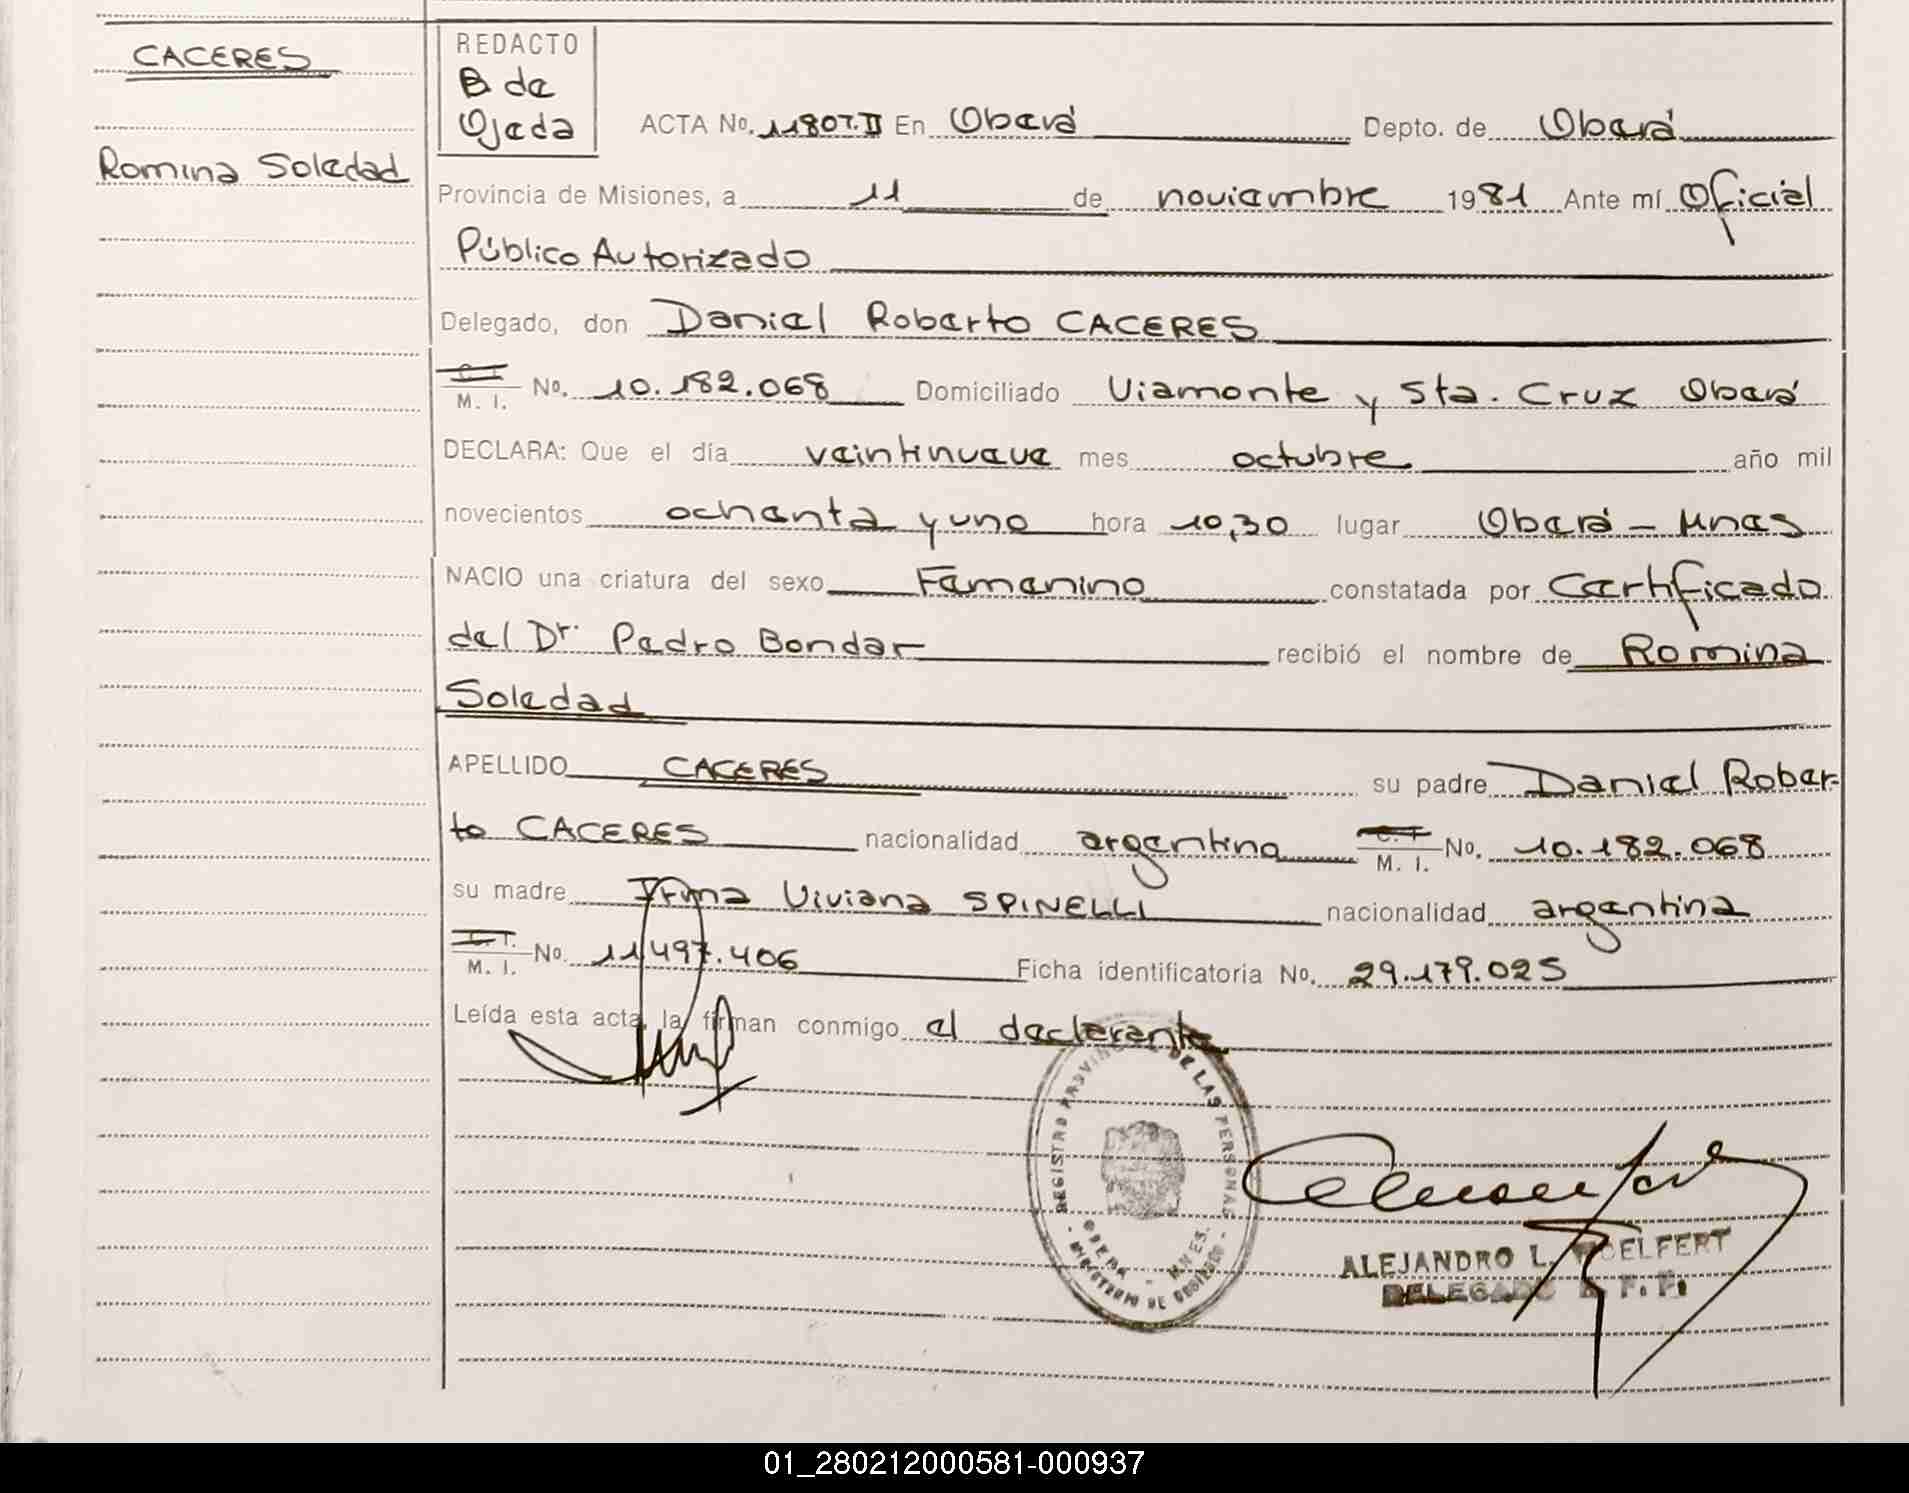 CACERES
Romina Soledad
REDACTO
B de
Ojeda
ACTA No. 11807.II En Oberá Depto. de Oberá
Provincia de Misiones, a 11 de noviembre 1981 Ante mí Oficial
Público Autorizado
Delegado, don Daniel Roberto CACERES
C. I.
M. I. No. 10.182.068 Domiciliado Viamonte y Sta. Cruz Oberá
DECLARA: Que el día veintinueve mes octubre año mil
novecientos ochenta y uno hora 10,30 lugar Oberá - Mnes
NACIO una criatura del sexo Femenino constatada por Certificado
del Dr. Pedro Bondar recibió el nombre de Romina
Soledad
APELLIDO CACERES su padre Daniel Rober-
to CACERES nacionalidad argentina C. I.
M. I. No. 10.182.068
su madre Irma Viviana SPINELLI nacionalidad argentina
C. I.
M. I. No. 11.497.406 Ficha identificatoria No. 29.179.025
Leída esta acta, la firman conmigo el declarante
REGISTRO PROVINCIAL DE LAS PERSONAS
OBERA - MNES.
MINISTERIO DE GOBIERNO
ALEJANDRO L. WOELFERT
DELEGADO R. P. P.
01_280212000581-000937